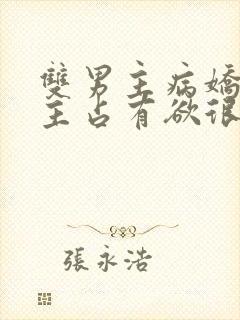 雙男主病嬌
主占有欲很
張永浩